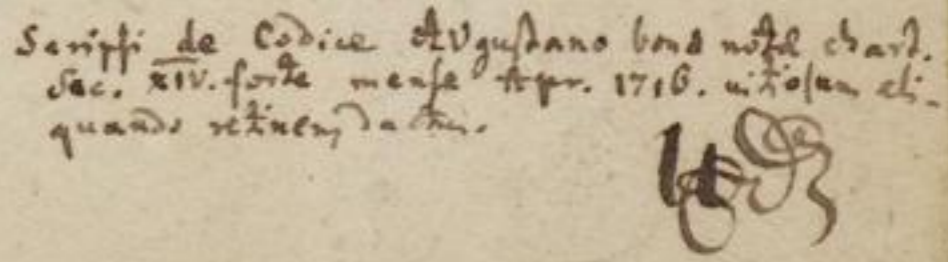 Scripsi de Codice AVgustano bonae notae chart.
Sec. XIV. forte mense Apr. 1716. vitiosum ali-
quando retinens